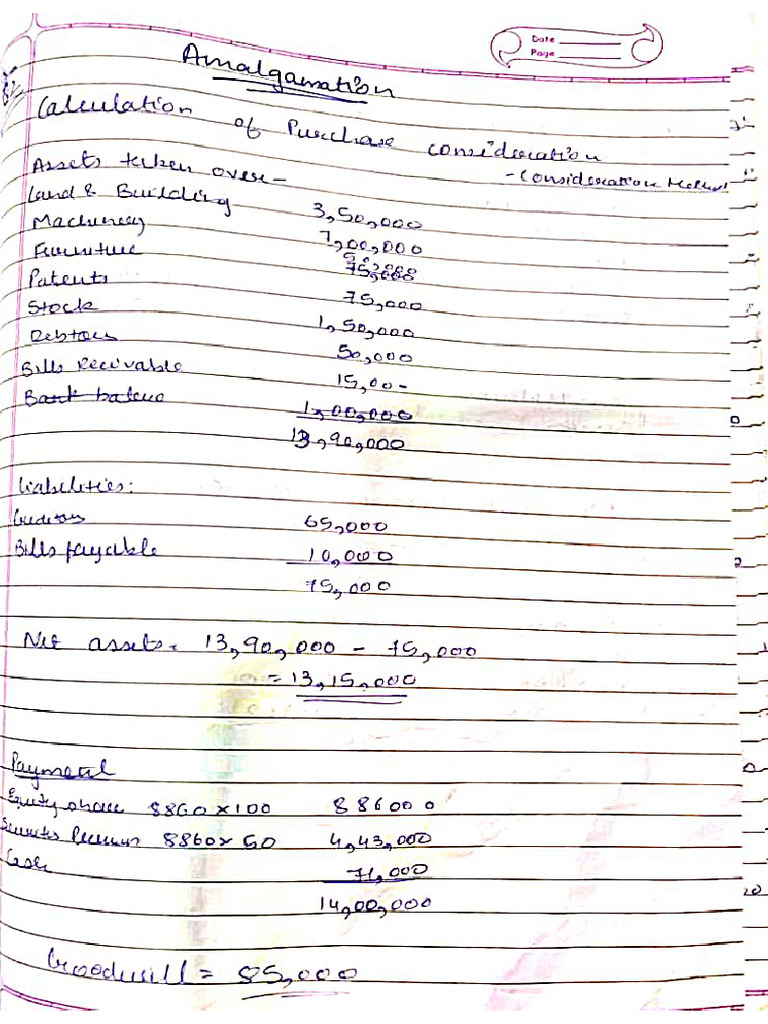 Date
Page
Amalgamation
Calculation of Purchase consideration
- Consideration Method
Assets taken over -
Land & Building 3,50,000
Machinery 7,00,000
Furniture 50,000
Patents 75,000
Stock 1,50,000
Debtors 50,000
Bills Receivable 15,00-
Bank balance 1,00,000
13,90,000
Liabilities:
Creditors 65,000
Bills payable 10,000
75,000
Net assets = 13,90,000 - 75,000
= 13,15,000
Payment
Equity share 8860 x 100 886000
Securities Premium 8860 x 50 4,43,000
Cash 71,000
14,00,000
Goodwill = 85,000